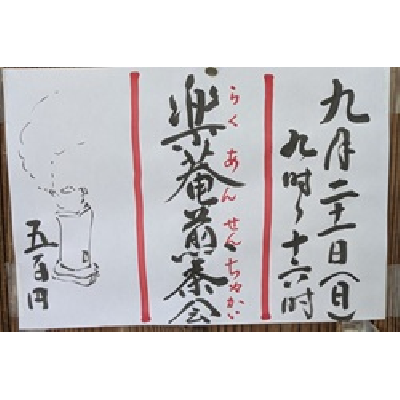 九月二十一日(日)
九時〜十六時
らくあんせんちゃかい
楽菴煎茶会
五百円